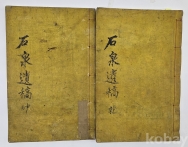 石泉遺稿
石泉遺稿
kobay